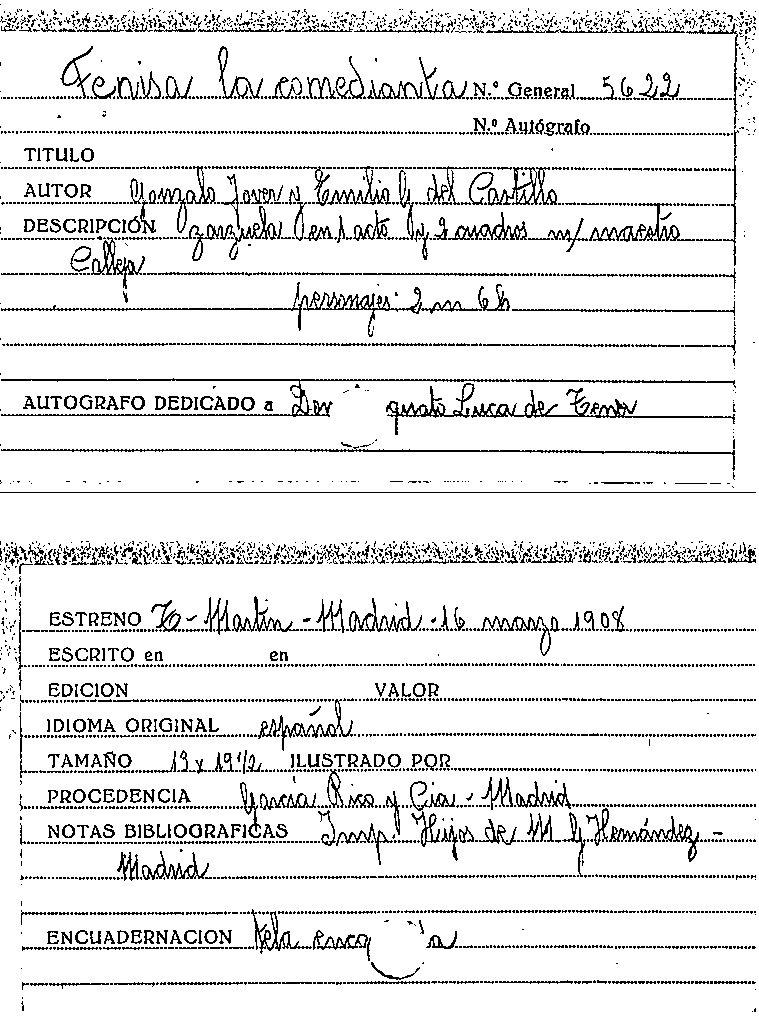 Fenisa la comedianta N.º General 5622
N.º Autógrafo
TITULO
AUTOR Gonzalo Jover y Emilio G. del Castillo
DESCRIPCIÓN zarzuela en 1 acto y 2 cuadros m/ maestro
Calleja
personajes: 2 m 6 h
AUTOGRAFO DEDICADO a Luca de Tena
ESTRENO To - Martin - Madrid - 16 marzo 1908
ESCRITO en en
EDICION VALOR
IDIOMA ORIGINAL español
TAMAÑO 13 x 19 1/2 ILUSTRADO POR
PROCEDENCIA García Rico y Cia - Madrid
NOTAS BIBLIOGRAFICAS Imp. Hijos de M G Hernández -
Madrid
ENCUADERNACION tela